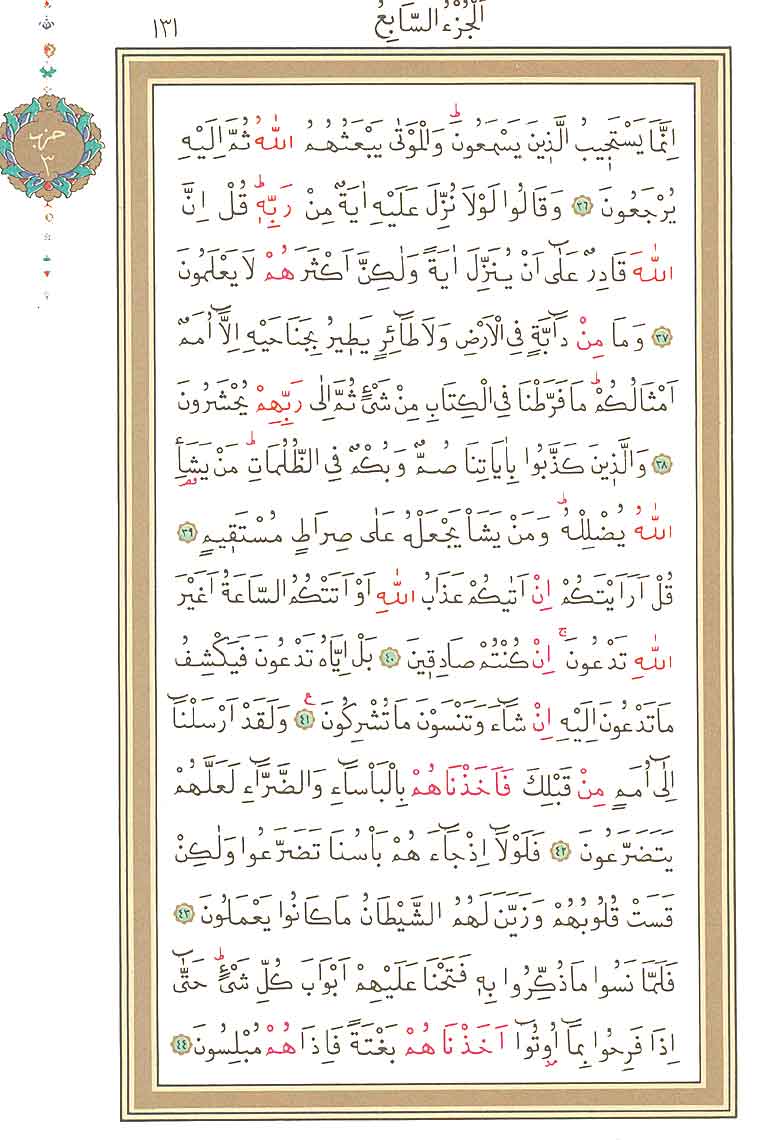 اَلْجُزْءُ السَّابِعُ
١٣١
حزب
٣
اِنَّمَا يَسْتَج۪يبُ الَّذ۪ينَ يَسْمَعُونَۜ وَالْمَوْتٰى يَبْعَثُهُمُ اللّٰهُ ثُمَّ اِلَيْهِ
يُرْجَعُونَ ﴿٣٦﴾ وَقَالُوا لَوْلَا نُزِّلَ عَلَيْهِ اٰيَةٌ مِنْ رَبِّه۪ۜ قُلْ اِنَّ
اللّٰهَ قَادِرٌ عَلٰٓى اَنْ يُنَزِّلَ اٰيَةً وَلٰكِنَّ اَكْثَرَهُمْ لَا يَعْلَمُونَ
﴿٣٧﴾ وَمَا مِنْ دَٓابَّةٍ فِي الْاَرْضِ وَلَا طَٓائِرٍ يَط۪يرُ بِجَنَاحَيْهِ اِلَّٓا اُمَمٌ
اَمْثَالُكُمْۜ مَا فَرَّطْنَا فِي الْكِتَابِ مِنْ شَيْءٍ ثُمَّ اِلٰى رَبِّهِمْ يُحْشَرُونَ
﴿٣٨﴾ وَالَّذ۪ينَ كَذَّبُوا بِاٰيَاتِنَا صُمٌّ وَبُكْمٌ فِي الظُّلُمَاتِۜ مَنْ يَشَأِ
اللّٰهُ يُضْلِلْهُۜ وَمَنْ يَشَأْ يَجْعَلْهُ عَلٰى صِرَاطٍ مُسْتَق۪يمٍ ﴿٣٩﴾
قُلْ اَرَاَيْتَكُمْ اِنْ اَتٰيكُمْ عَذَابُ اللّٰهِ اَوْ اَتَتْكُمُ السَّاعَةُ اَغَيْرَ
اللّٰهِ تَدْعُونَۚ اِنْ كُنْتُمْ صَادِق۪ينَ ﴿٤٠﴾ بَلْ اِيَّاهُ تَدْعُونَ فَيَكْشِفُ
مَا تَدْعُونَ اِلَيْهِ اِنْ شَٓاءَ وَتَنْسَوْنَ مَا تُشْرِكُونَ ﴿٤١﴾ وَلَقَدْ اَرْسَلْنَٓا
اِلٰٓى اُمَمٍ مِنْ قَبْلِكَ فَاَخَذْنَاهُمْ بِالْبَأْسَٓاءِ وَالضَّرَّٓاءِ لَعَلَّهُمْ
يَتَضَرَّعُونَ ﴿٤٢﴾ فَلَوْلَٓا اِذْ جَٓاءَهُمْ بَأْسُنَا تَضَرَّعُوا وَلٰكِنْ
قَسَتْ قُلُوبُهُمْ وَزَيَّنَ لَهُمُ الشَّيْطَانُ مَا كَانُوا يَعْمَلُونَ ﴿٤٣﴾
فَلَمَّا نَسُوا مَا ذُكِّرُوا بِه۪ فَتَحْنَا عَلَيْهِمْ اَبْوَابَ كُلِّ شَيْءٍۜ حَتّٰٓى
اِذَا فَرِحُوا بِمَٓا اُو۫تُٓوا اَخَذْنَاهُمْ بَغْتَةً فَاِذَا هُمْ مُبْلِسُونَ ﴿٤٤﴾